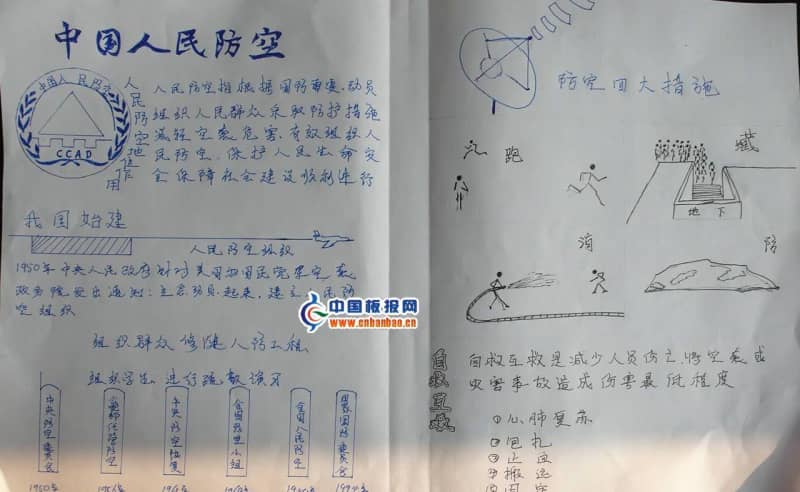 中国人民防空
中国人民防空
CCAD
人民防空地位作用
人民防空指根据国防需要,动员
组织人民群众采取防护措施
减轻空袭危害,有效组织人
民防空,保护人民生命安
全保障社会建设顺利进行
我国始建
人民防空组织
1950年中央人民政府针对美国和国民党
政务院发出通知:立
空组织
组织群众修建人防工程
组织学生进行疏散演习
中央防空委员会
中央防空
全国防空小组
全国人民防空
国家国防委员会
1950年
防空四大措施
跑
藏
地下
消
防
自救互救
自救互救是减少人员伤亡,将空袭或
灾害事故造成伤害最低程度
①心肺复苏
②包扎
③止血
④搬运
中国板报网
www.cnbanbao.cn